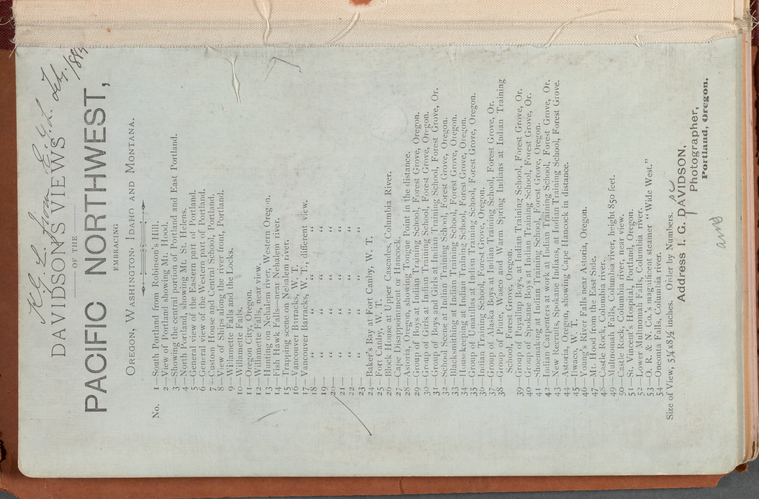 DAVIDSON'S VIEWS
OF THE
PACIFIC NORTHWEST,
EMBRACING
OREGON, WASHINGTON, IDAHO AND MONTANA.
No. 1—South Portland from Robinson's Hill.
2—View of Portland showing Mt. Hood.
3—Showing the central portion of Portland and East Portland.
4—North Portland showing Mt. St. Helens.
5—General view of the Eastern part of Portland.
6—General view of the Western part of Portland.
7—Custom House and Central School, Portland.
8—View of Ships along the river front, Portland.
9—Willamette Falls and the Locks.
10—Willamette Falls.
11—Oregon City, Oregon.
12—Willamette Falls, near view.
13—Hunting on Nehalem river, Western Oregon.
14—Fish Hawk Falls—near Nehalem river.
15—Trapping scene on Nehalem river.
16—Vancouver Barracks, W. T.
17—Vancouver Barracks, W. T., different view.
18— " " "
19— " " "
20— " " "
21— " " "
22— " " "
23— " " "
24—Baker's Bay at Fort Canby, W. T.
25—Fort Canby, W. T.
26—Block House at Upper Cascades, Columbia River.
27—Cape Disappointment or Hancock.
28—Astoria, Oregon, showing Tongue Point in the distance.
29—Group of Boys at Indian Training School, Forest Grove, Oregon.
30—Group of Girls at Indian Training School, Forest Grove, Oregon.
31—Group of Puyallup Boys at Indian Training School, Forest Grove, Or.
32—School Scene at Indian Training School, Forest Grove, Oregon.
33—Blacksmithing at Indian Training School, Forest Grove, Oregon.
34—House Work at Indian Training School, Forest Grove, Oregon.
35—Group of Umatillas at Indian Training School, Forest Grove, Oregon.
36—Indian Training School, Forest Grove, Oregon.
37—Group of Alaska Indians at Indian Training School, Forest Grove, Or.
38—Group of Piute, Wasco and Warm Spring Indians at Indian Training
School, Forest Grove, Oregon.
39—Group of Spokane Boys, at Indian Training School, Forest Grove, Or.
40—Group of Spokane Boys at Indian Training School, Forest Grove, Or.
41—Shoemaking at Indian Training School, Forest Grove, Oregon.
42—Indian Girls at work at Indian Training School, Forest Grove, Or.
43—New Recruits, Spokane Indians, at Indian Training School, Forest Grove.
44—Astoria, Oregon, showing Cape Hancock in distance.
45—Ilwaco, W. T.
46—Young's River Falls near Astoria, Oregon.
47—Mt. Hood from the East Side.
48—Castle Rock, Columbia river.
49—Multnomah Falls, Columbia river, height 850 feet.
50—Castle Rock, Columbia river, near view.
51—St. Vincent's Hospital, Portland, Oregon.
52—Lower Multnomah Falls, Columbia river.
53—O. R. & N. Co.'s magnificent steamer "Wide West."
54—Oneonta Falls, Columbia river.
Size of View, 5¼x8½ inches. Order by Numbers.
Address I. G. DAVIDSON,
Photographer,
Portland, Oregon.
and